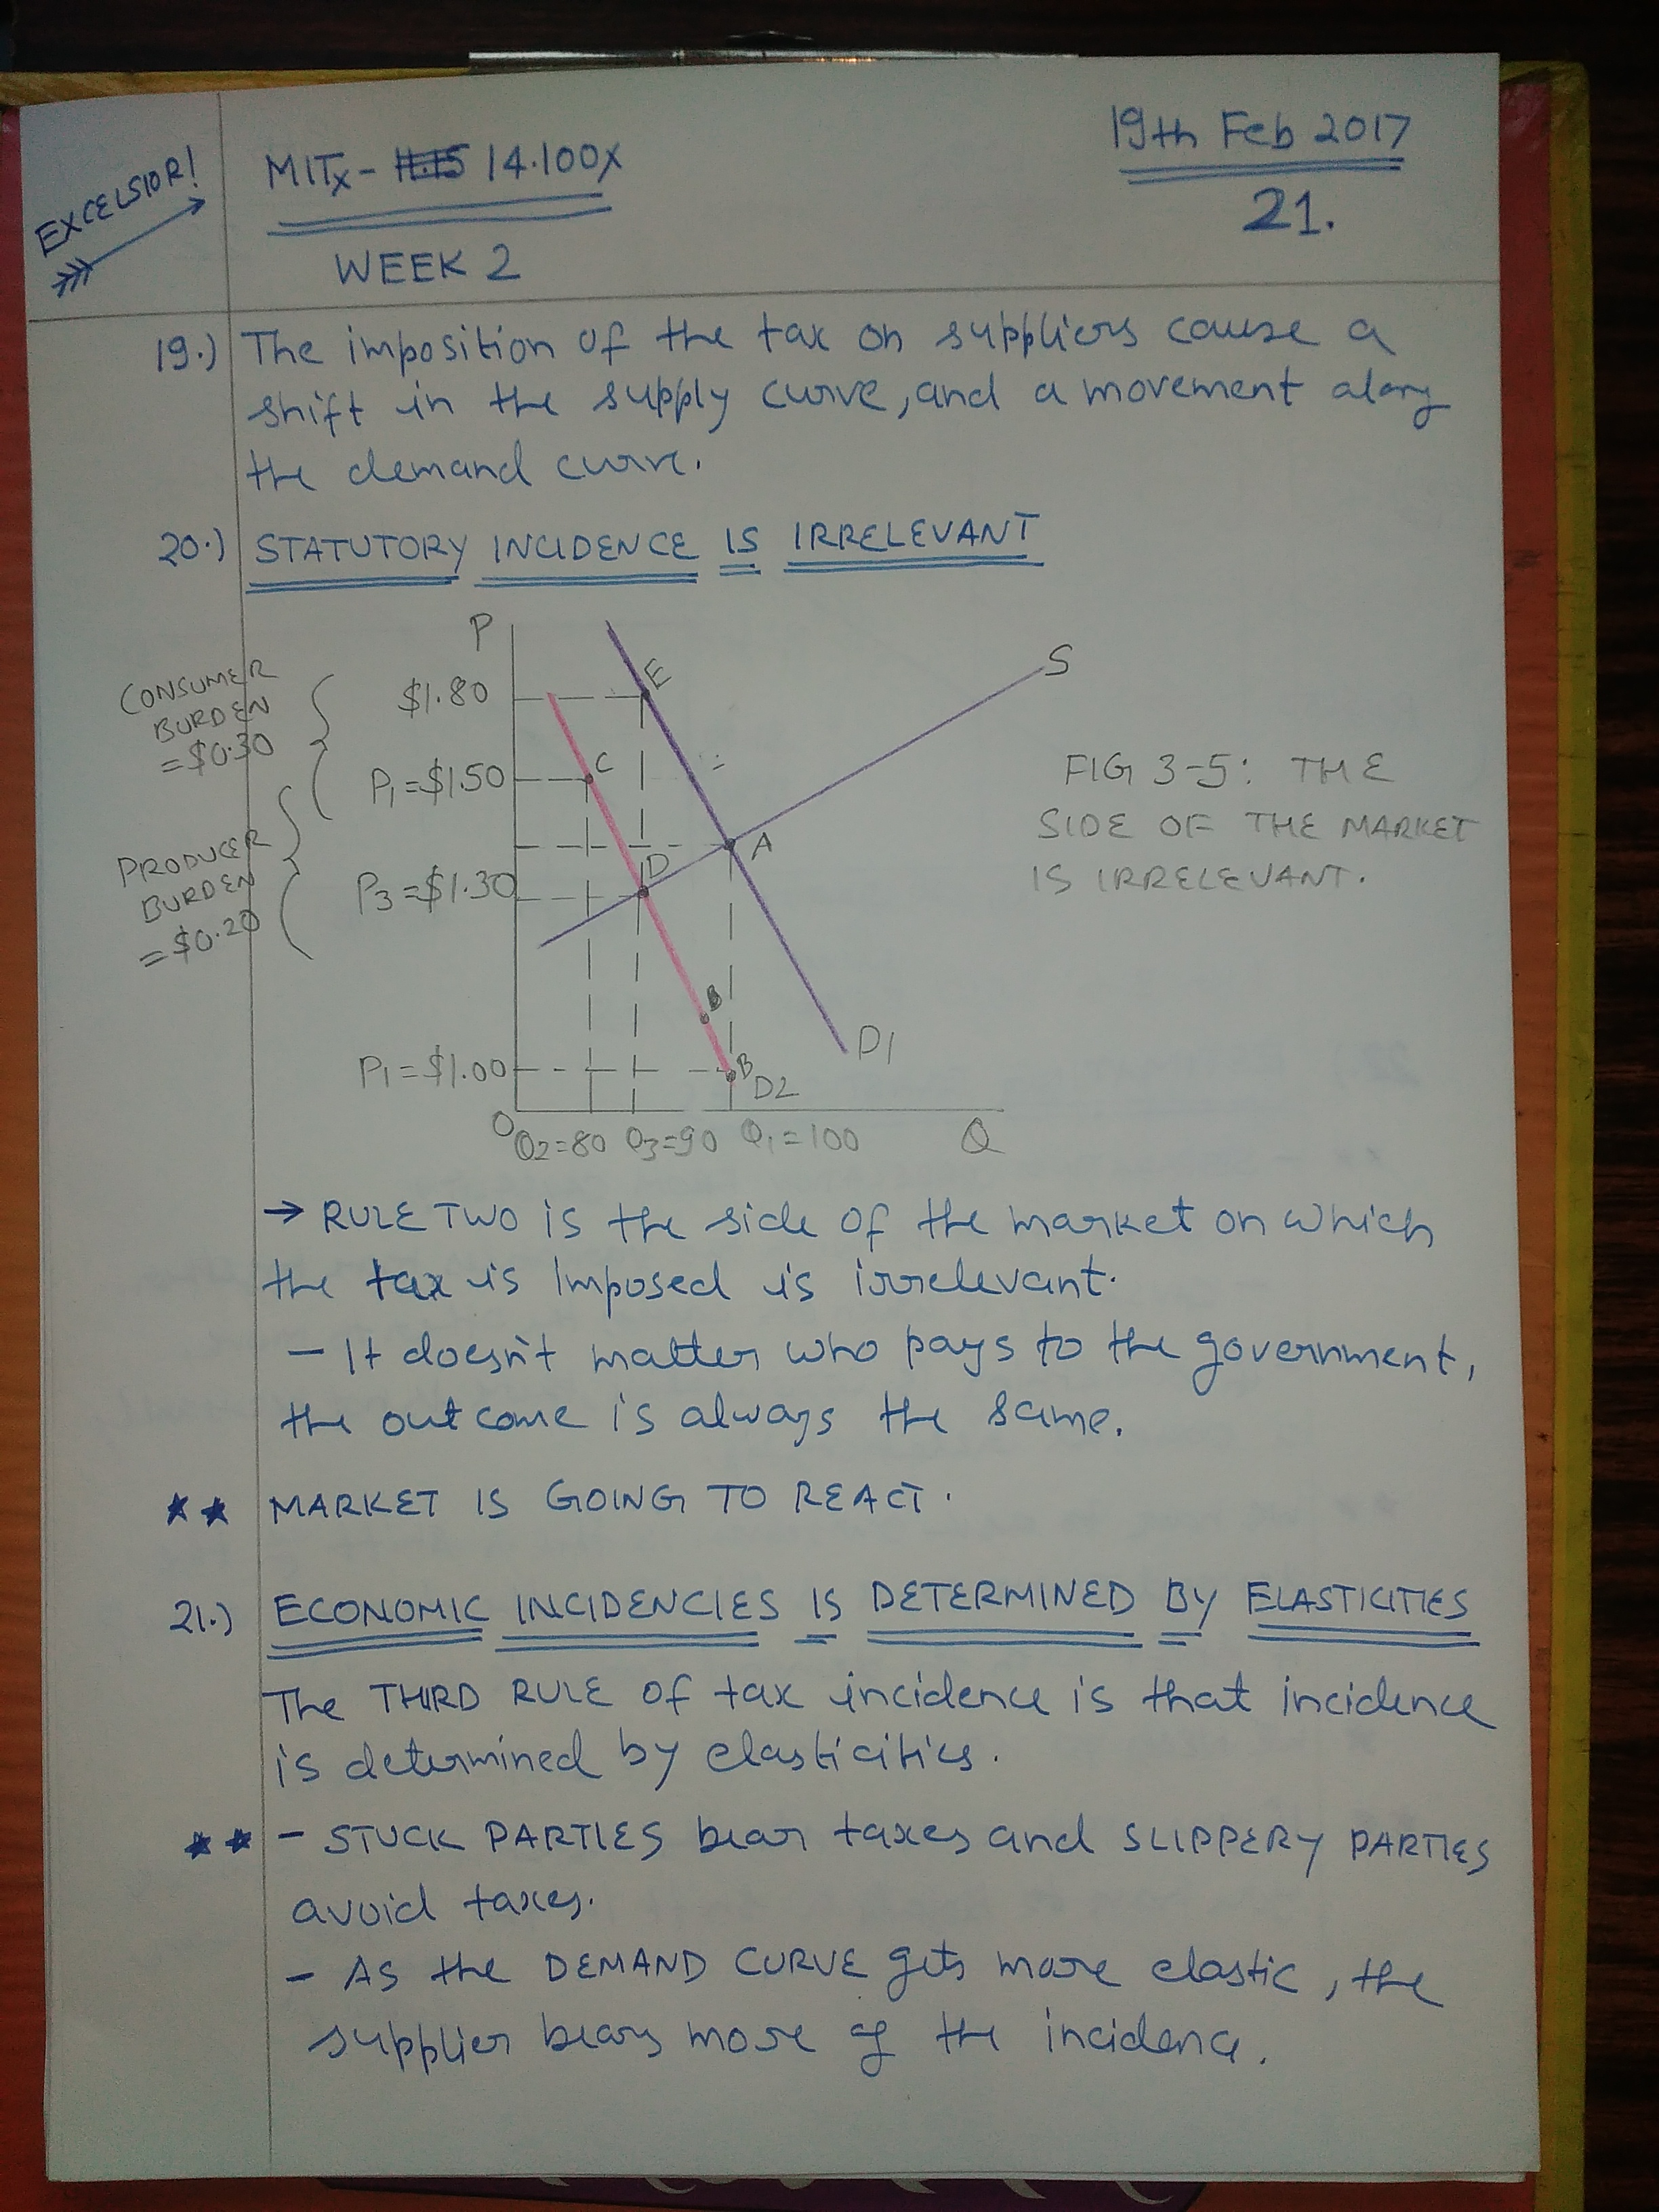 EXCELSIOR!
MITx - 11.15 14.100x
WEEK 2
19th Feb 2017
21.
19.) The imposition of the tax on suppliers cause a
shift in the supply curve, and a movement along
the demand curve.
20.) STATUTORY INCIDENCE IS IRRELEVANT
P
CONSUMER
BURDEN
=$0.30
PRODUCER
BURDEN
=$0.20
$1.80
P1=$1.50
P3=$1.30
P1=$1.00
E
S
C
A
D
B
B
D1
D2
O
Q2=80 Q3=90 Q1=100 Q
FIG 3-5: THE
SIDE OF THE MARKET
IS IRRELEVANT.
→ RULE TWO is the side of the market on which
the tax is Imposed is irrelevant.
- It doesn't matter who pays to the government,
the outcome is always the same.
★★ MARKET IS GOING TO REACT.
21.) ECONOMIC INCIDENCIES IS DETERMINED BY ELASTICITIES
The THIRD RULE of tax incidence is that incidence
is determined by elasticities.
★★ - STUCK PARTIES bear taxes and SLIPPERY PARTIES
avoid taxes.
- AS the DEMAND CURVE gets more elastic, the
supplier bears more of the incidence.